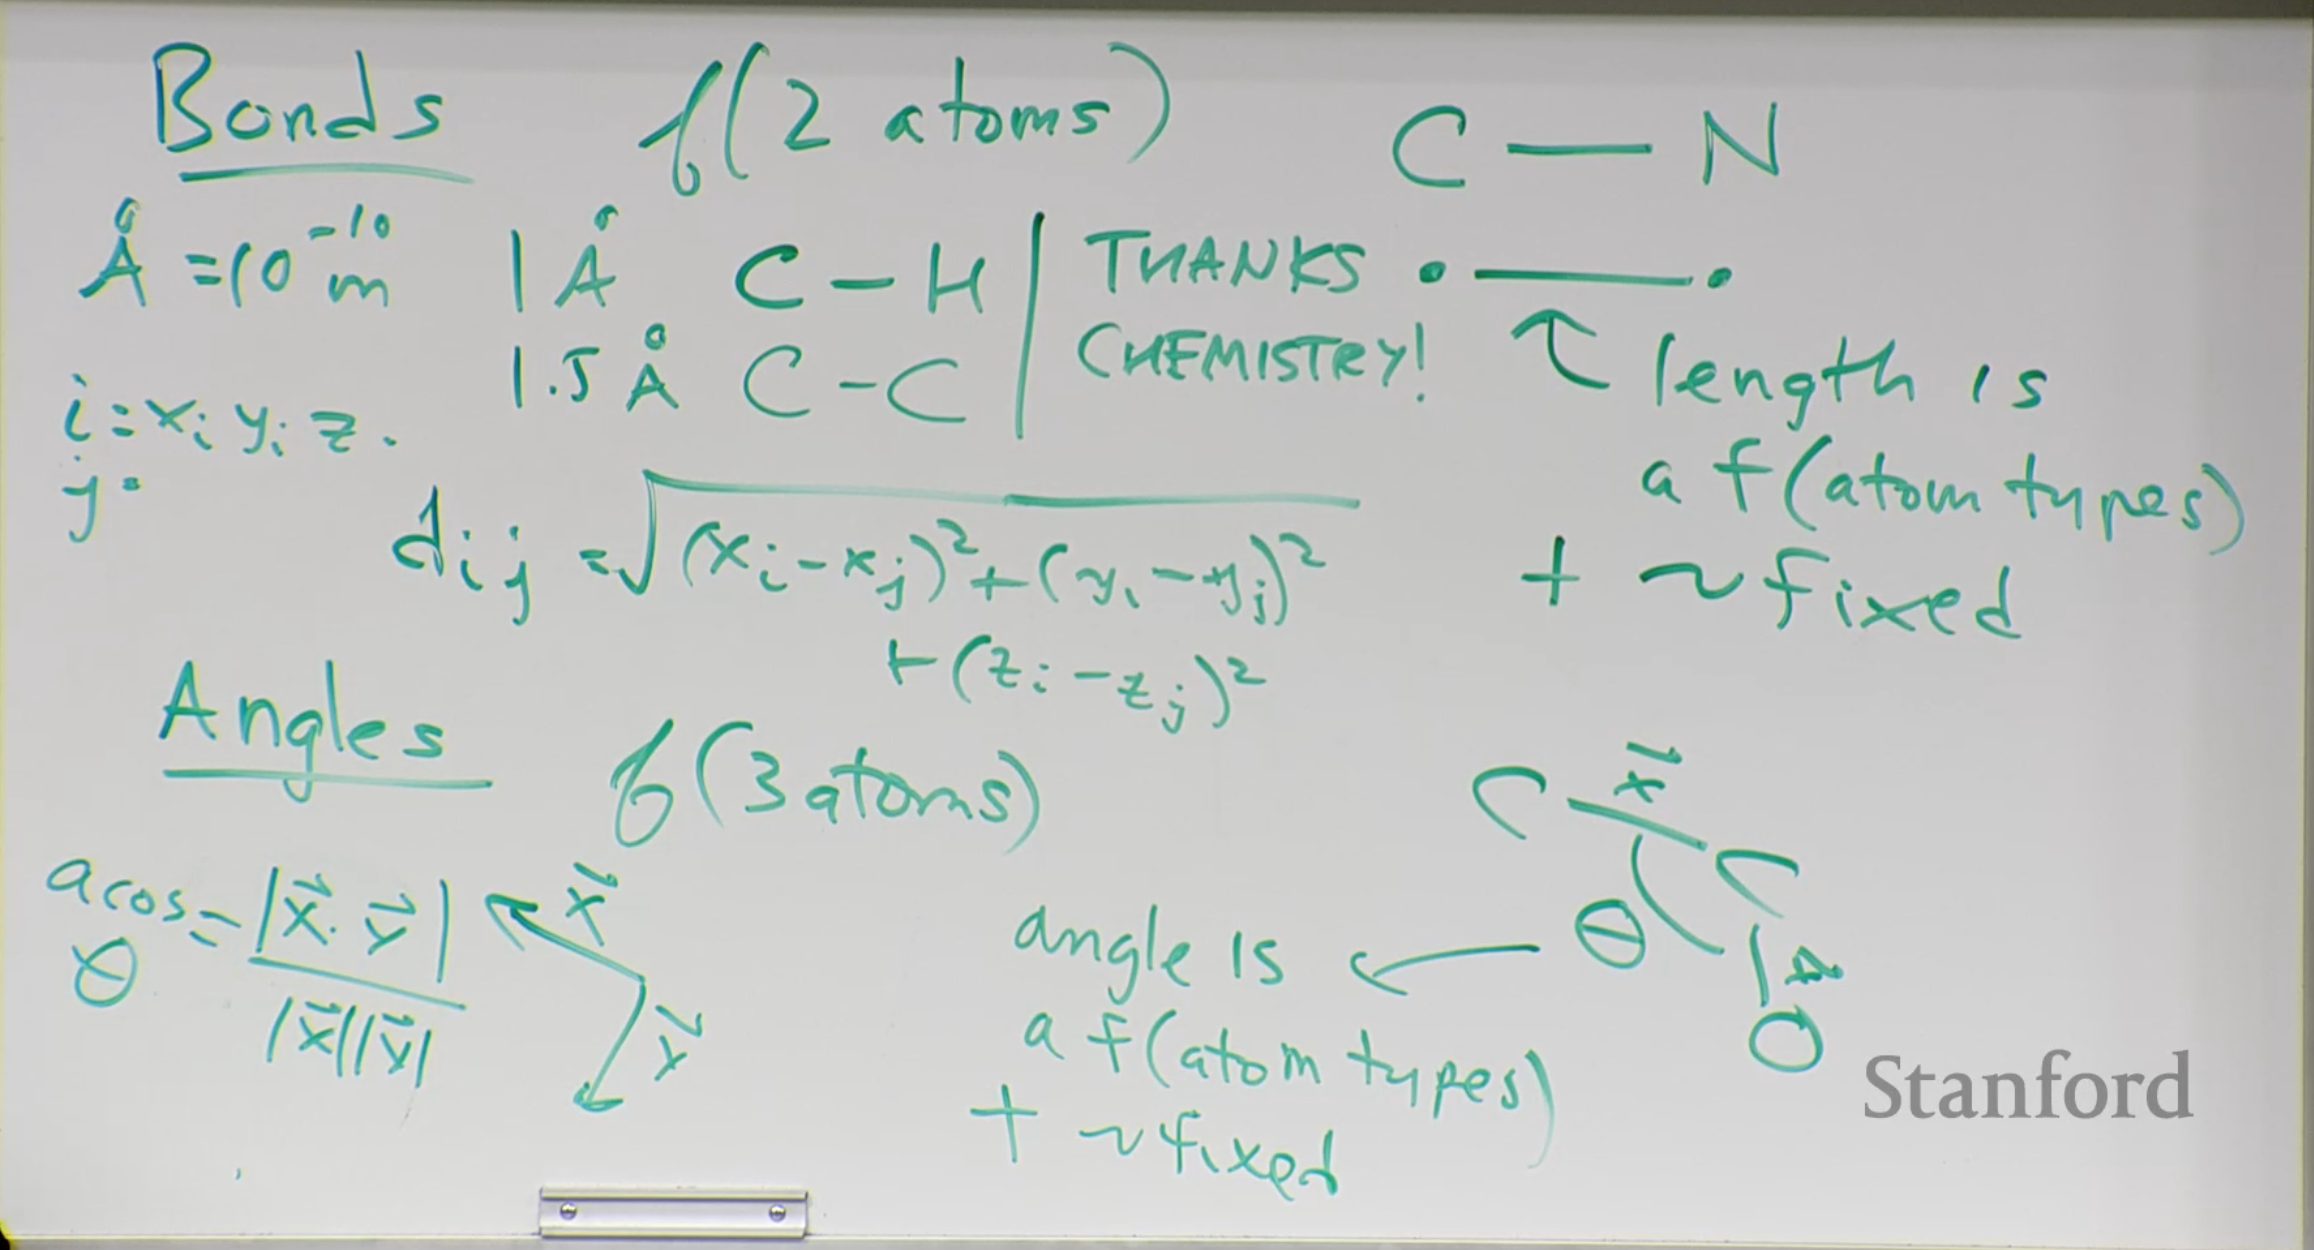 Bonds f(2 atoms) C — N
Å = 10⁻¹⁰ m 1 Å C – H | THANKS
1.5 Å C – C | CHEMISTRY!
length is
a f(atom types)
+ ~ fixed
i = xᵢ yᵢ z.
j =
dᵢⱼ = √(xᵢ - xⱼ)² + (yᵢ - yⱼ)²
+ (zᵢ - zⱼ)²
Angles f(3 atoms)
acos = |x⃗ · y⃗|
θ |x⃗||y⃗|
x⃗
y⃗
angle is
a f(atom types)
+ ~ fixed
C x⃗ C
θ
O
Stanford